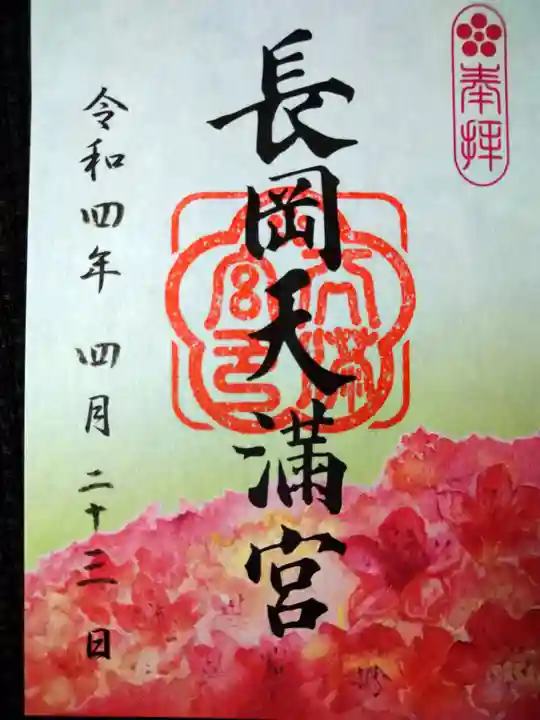 奉拝
長岡天満宮
令和四年 四月二十三日